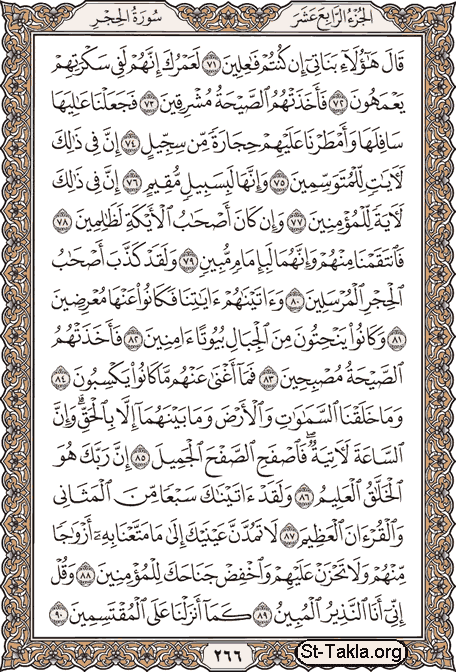 سُورَةُ الحِجْرِ الجُزْءُ الرَّابِعَ عَشَرَ
قَالَ هَٰٓؤُلَآءِ بَنَاتِيٓ إِن كُنتُمْ فَٰعِلِينَ ٧١ لَعَمْرُكَ إِنَّهُمْ لَفِي سَكْرَتِهِمْ
يَعْمَهُونَ ٧٢ فَأَخَذَتْهُمُ ٱلصَّيْحَةُ مُشْرِقِينَ ٧٣ فَجَعَلْنَا عَٰلِيَهَا
سَافِلَهَا وَأَمْطَرْنَا عَلَيْهِمْ حِجَارَةً مِّن سِجِّيلٍ ٧٤ إِنَّ فِي ذَٰلِكَ
لَأٓيَٰتٍ لِّلْمُتَوَسِّمِينَ ٧٥ وَإِنَّهَا لَبِسَبِيلٍ مُّقِيمٍ ٧٦ إِنَّ فِي ذَٰلِكَ
لَأٓيَةً لِّلْمُؤْمِنِينَ ٧٧ وَإِن كَانَ أَصْحَٰبُ ٱلْأَيْكَةِ لَظَٰلِمِينَ ٧٨
فَٱنتَقَمْنَا مِنْهُمْ وَإِنَّهُمَا لَبِإِمَامٍ مُّبِينٍ ٧٩ وَلَقَدْ كَذَّبَ أَصْحَٰبُ
ٱلْحِجْرِ ٱلْمُرْسَلِينَ ٨٠ وَءَاتَيْنَٰهُمْ ءَايَٰتِنَا فَكَانُوا۟ عَنْهَا مُعْرِضِينَ
٨١ وَكَانُوا۟ يَنْحِتُونَ مِنَ ٱلْجِبَالِ بُيُوتًا ءَامِنِينَ ٨٢ فَأَخَذَتْهُمُ
ٱلصَّيْحَةُ مُصْبِحِينَ ٨٣ فَمَآ أَغْنَىٰ عَنْهُم مَّا كَانُوا۟ يَكْسِبُونَ ٨٤
وَمَا خَلَقْنَا ٱلسَّمَٰوَٰتِ وَٱلْأَرْضَ وَمَا بَيْنَهُمَآ إِلَّا بِٱلْحَقِّ ۗ وَإِنَّ
ٱلسَّاعَةَ لَأٓتِيَةٌ ۖ فَٱصْفَحِ ٱلصَّفْحَ ٱلْجَمِيلَ ٨٥ إِنَّ رَبَّكَ هُوَ
ٱلْخَلَّٰقُ ٱلْعَلِيمُ ٨٦ وَلَقَدْ ءَاتَيْنَٰكَ سَبْعًا مِّنَ ٱلْمَثَانِي
وَٱلْقُرْءَانَ ٱلْعَظِيمَ ٨٧ لَا تَمُدَّنَّ عَيْنَيْكَ إِلَىٰ مَا مَتَّعْنَا بِهِۦٓ أَزْوَٰجًا
مِّنْهُمْ وَلَا تَحْزَنْ عَلَيْهِمْ وَٱخْفِضْ جَنَاحَكَ لِلْمُؤْمِنِينَ ٨٨ وَقُلْ
إِنِّيٓ أَنَا ٱلنَّذِيرُ ٱلْمُبِينُ ٨٩ كَمَآ أَنزَلْنَا عَلَى ٱلْمُقْتَسِمِينَ ٩٠
٢٦٦
St-Takla.org